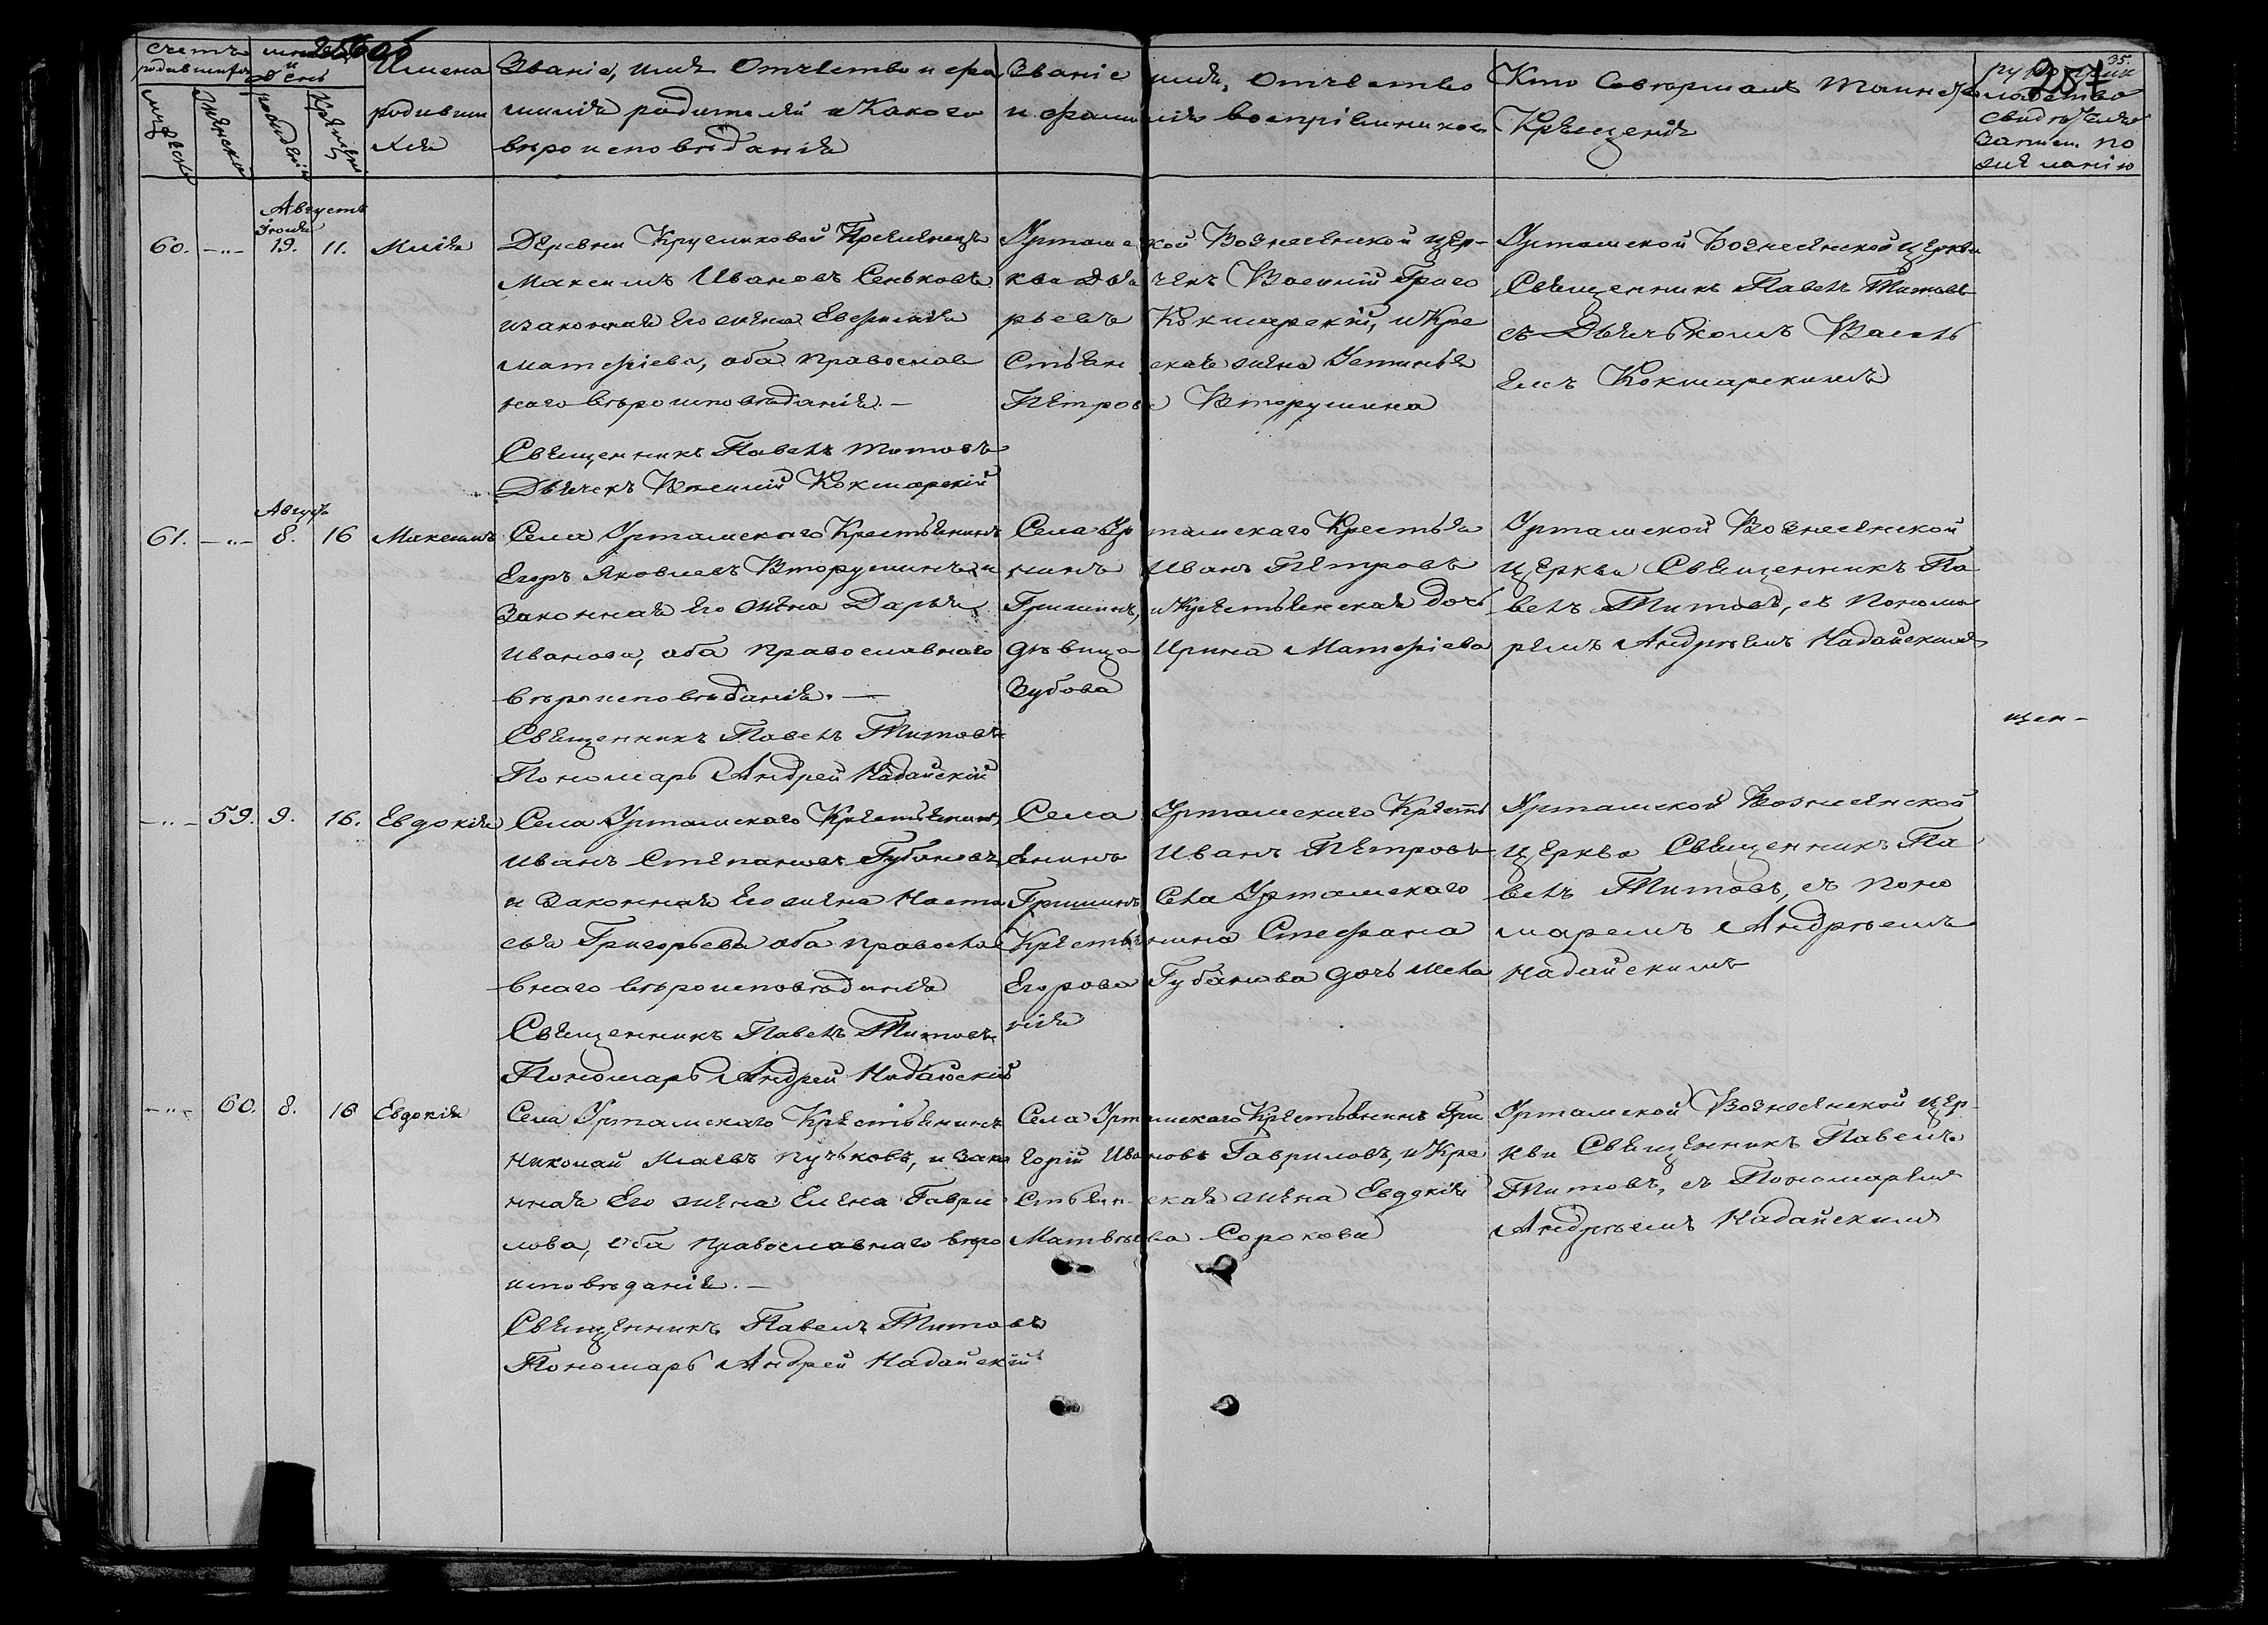 256об
35.
257
Счетъ родившихся
Мужеска
Женска
Мѣсяцъ и день
рожденія
Крещенія
Имена
родивши
хся
Званіе, имя Отчество и фа
милія родителей и Какого
вѣроисповѣданія
Званіе имя, Отчество
и фамилія воспріемниковъ
Кто Совершалъ Таинство
Крещенія
рукопри
кладство
свидѣтелей
записи по
желанію
Августъ
Іюля
60. -"- 19. 11. Илія
Деревни Кругликовой
Максимъ Ивановъ Сеньковъ
и законная Его жена Евфимія
матфіева, оба православ
наго вѣроисповѣданія.-
Священникъ Павелъ Титовъ
Дьячекъ Василій Кокшарскій
Уртамской Вознесенской цер-
кви Дьячекъ Василій Григо
рьевъ Кокшарскій, и Кре
стьянская жена Устинья
Петрова Вторушина
Уртамской Вознесенской Церкви
Священникъ Павелъ Титовъ
съ Дьячькомъ Василь
емъ Кокшарскимъ
Августъ
61. -"- 8. 16 Максимъ
Села Уртамскаго Крестьянинъ
Егоръ Яковлевъ Вторушинъ и
Законная Его жена Дарья
Иванова, оба православнаго
вѣроисповѣданія.-
Священникъ Павелъ Титовъ
Пономарь Андрей Надайскій
Села Уртамскаго Крестья
нинъ Иванъ Петровъ
Гришинъ, и Крестьянская дочь
дѣвица Ирина Матфіева
Зубова
Уртамской Вознесенской
Церкви Священникъ Па
велъ Титовъ, съ Понома
ремъ Андрѣемъ Надайскимъ
щен-
-"- 59. 9. 16. Евдокія
Села Уртамскаго Крестьянинъ
Иванъ Степановъ Губановъ
и Законная Его жена Наста
сья Григорьева оба правосла
внаго вѣроисповѣданія
Священникъ Павелъ Титовъ
Пономарь Андрей Надайскій
Села Уртамскаго Кресть
янинъ Иванъ Петровъ
Гришинъ Села Уртамскаго
Крестьянина Стефана
Егорова Губанова дочь Мела
нія
Уртамской Вознесенской
Церкви Священникъ Па
велъ Титовъ, съ Поно
маремъ Андрѣемъ
Надайскимъ
-"- 60. 8. 16 Евдокія
Села Уртамскаго Крестьянинъ
Николай Ильевъ Пучьковъ, и Зако
нная Его жена Елена Гаври
лова, оба православнаго вѣро
исповѣданія.-
Священникъ Павелъ Титовъ
Пономарь Андрей Надайскій
Села Уртамскаго Крестьянинъ Гри
горій Ивановъ Гавриловъ, и Кре
стьянская жена Евдокія
Матвѣева Сорокова
Уртамской Вознесенской Цер-
кви Священникъ Павелъ
Титовъ, съ Пономаремъ
Андрѣемъ Надайскимъ